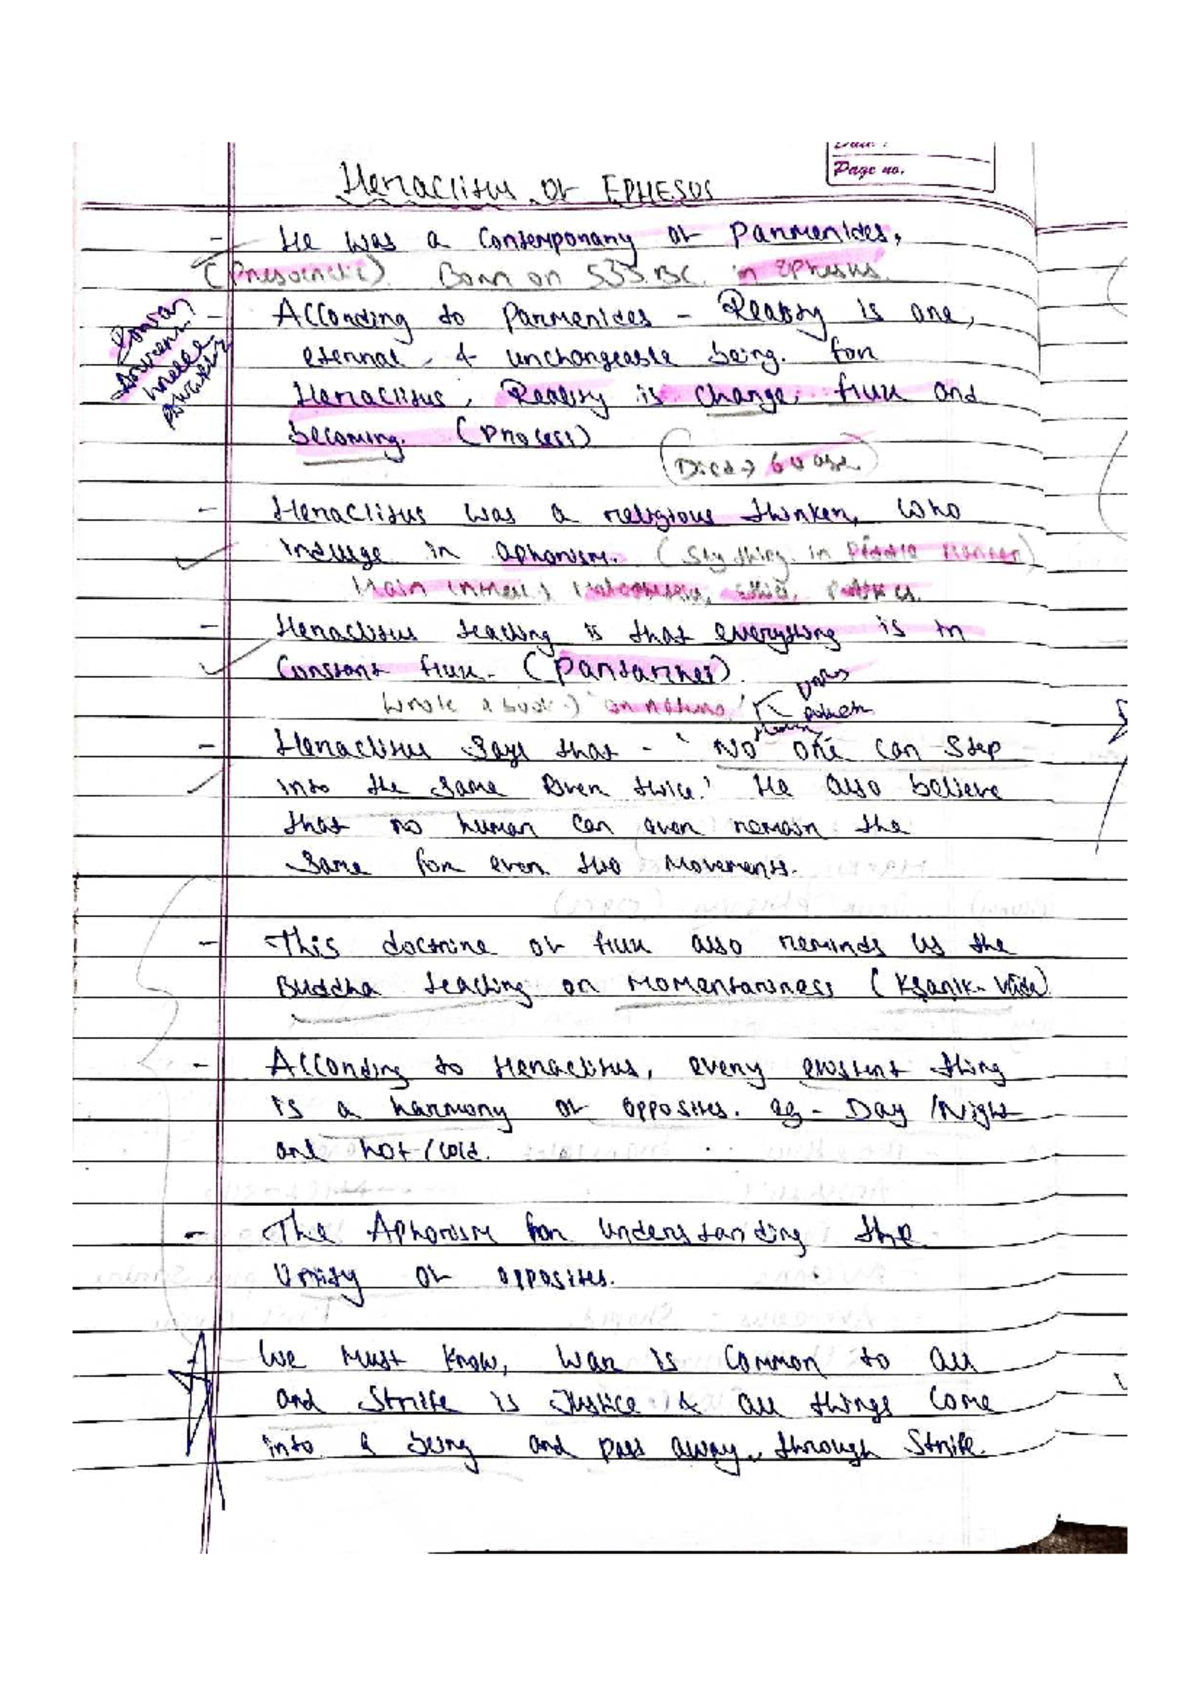 Date :
Page no.
Heraclitus of EPHESUS
- He was a contemporary of Parmenides,
(Presocratic) Born on 535 BC. in Ephesus.
- According to Parmenides - Reality is one,
eternal & unchangeable being. for
Heraclitus, Reality is change, flux and
becoming. (Process)
(Died → 60 age)
- Heraclitus was a religious thinker, who
indulge in aphorism. (Say thing in Riddle manner)
Main
- Heraclitus teaching is that everything is in
Constant flux. (Pantarhei)
Wrote a book → 'on nature'
- Heraclitus says that - 'No one can step
into the same River twice.' He also believe
that no human can even remain the
same for even two movements.
- This doctrine of flux also reminds us the
Buddha teaching on Momentariness (Kṣanik-Vāda)
- According to Heraclitus, every existent thing
is a harmony of opposites. eg - Day /Night
and hot/cold.
- The Aphorism for understanding the
Unity of opposites.
We must know, war is common to all
and Strife is Justice & all things come
into a being and pass away, through Strife.